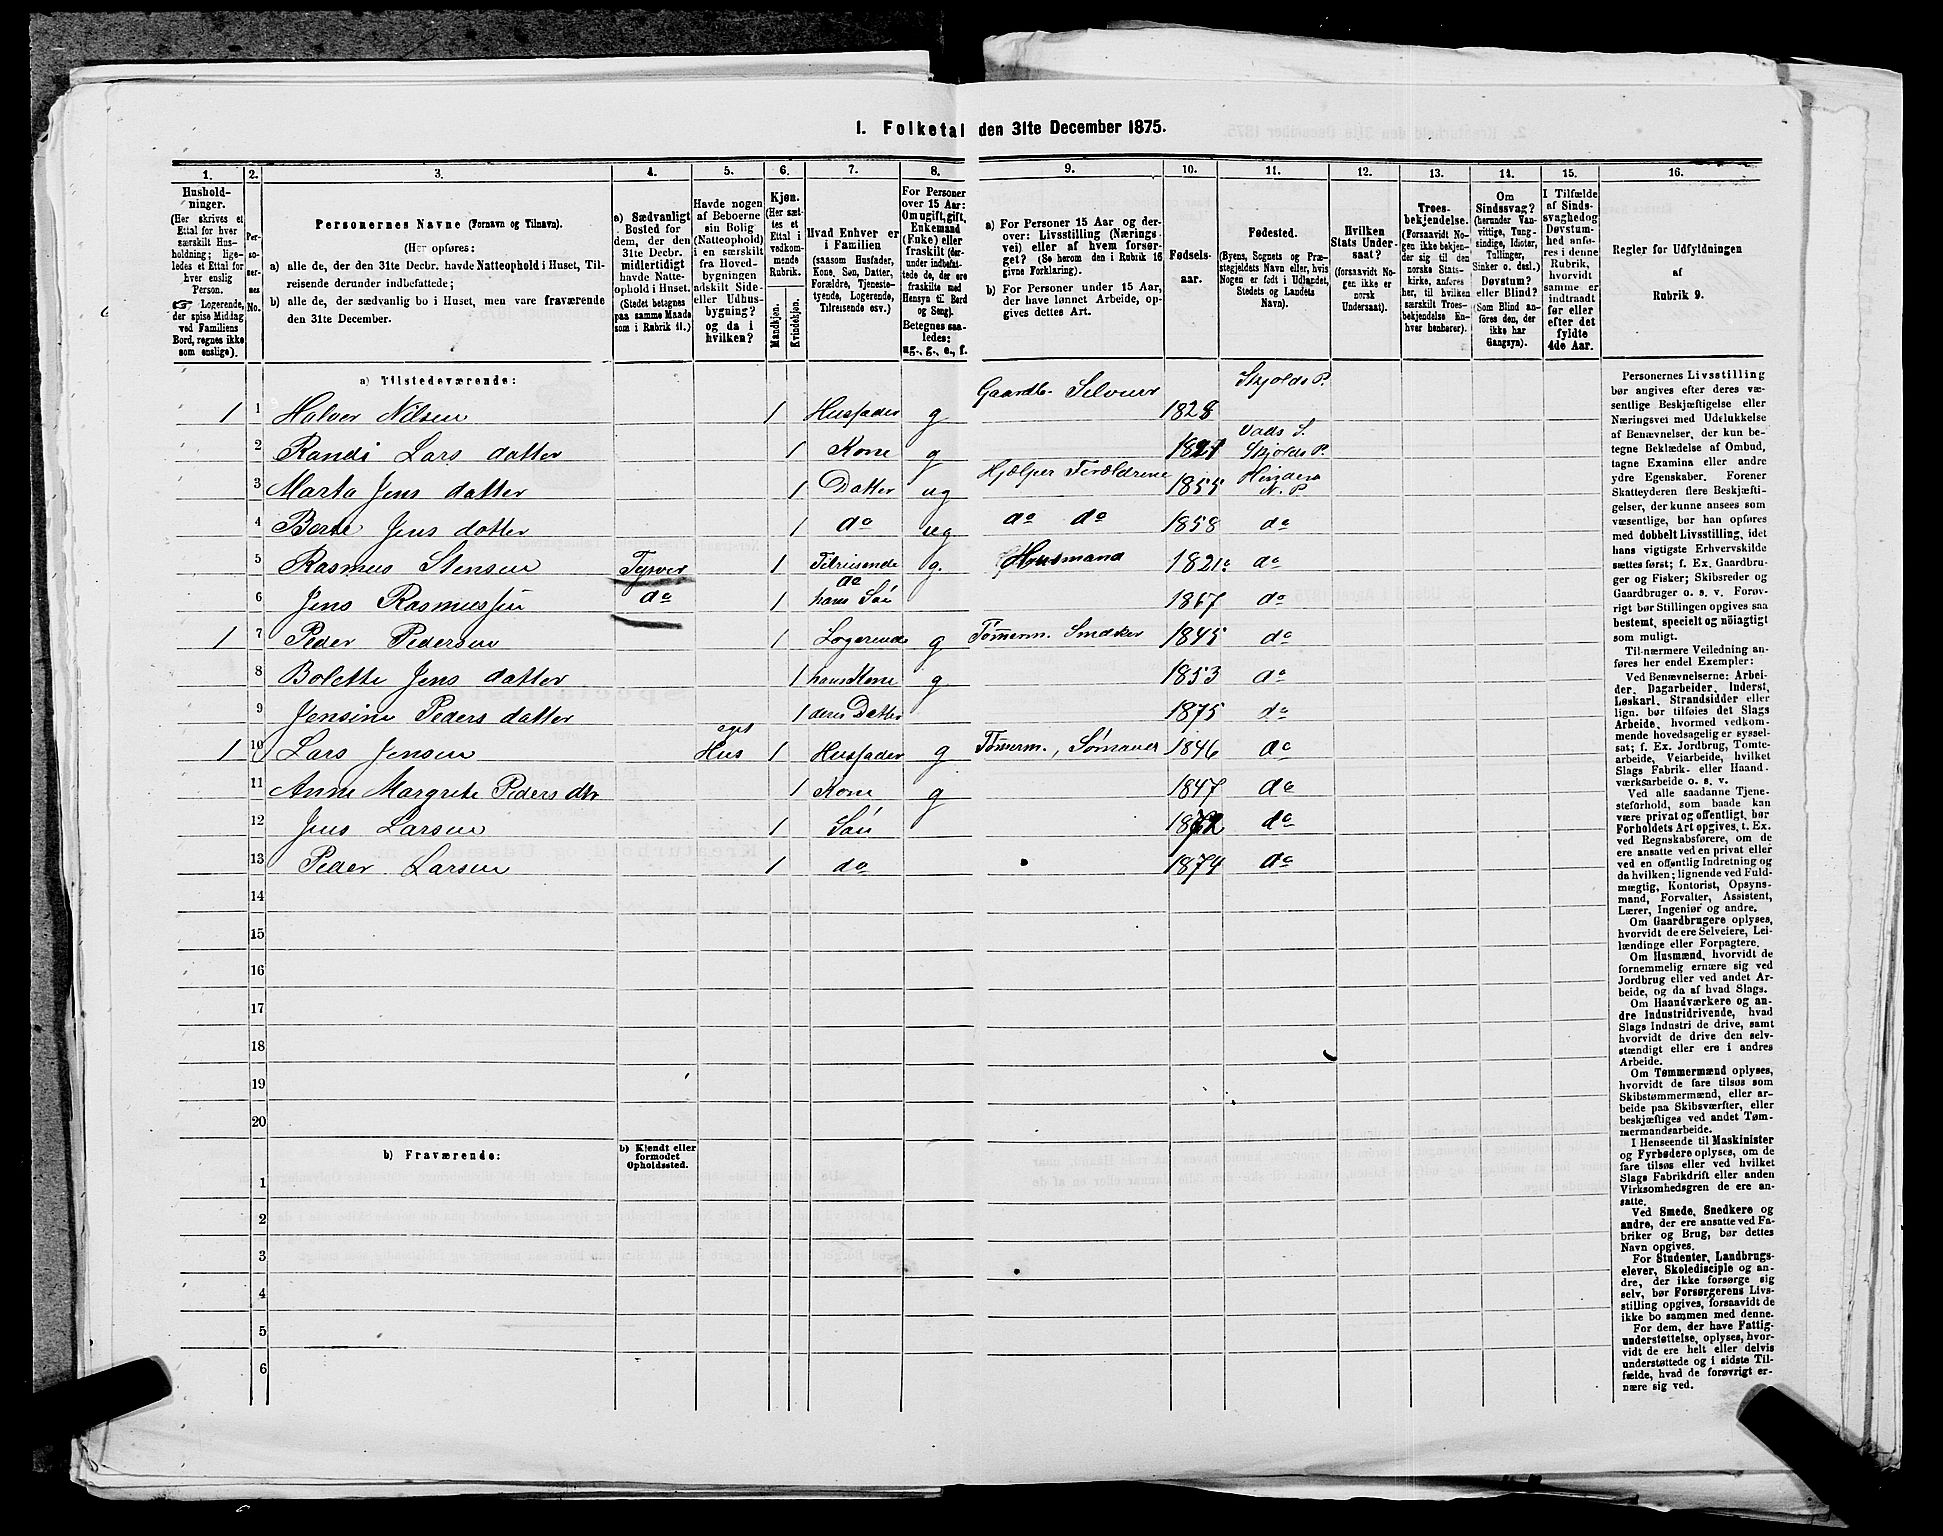 I. Folketal den 31te December 1875.
1. 2. 3. 4. 5. 6. 7. 8. 9. 10. 11. 12. 13. 14. 15. 16.
Hushold-
ninger.
(Her skrives et
Ettal for hver
særskilt Hus-
holdning; lige-
ledes et Ettal for
hver enslig
Person.
☞ Logerende,
der spise Middag
ved Familiens
Bord, regnes ikke
som enslige).
Per-
soner-
nes
No.
Personernes Navne (Fornavn og Tilnavn).
(Her opføres:
a) alle de, der den 31te Decbr. havde Natteophold i Huset, Til-
reisende derunder indbefattede;
b) alle de, der sædvanlig bo i Huset, men vare fraværende
den 31te December.
a) Sædvanligt
Bosted for
dem, der den
31te Decbr.
midlertidigt
havde Natte-
ophold i Huset.
(Stedet betegnes
paa samme Maade
som i Rubrik 11.)
Havde nogen
af Beboerne
sin Bolig
(Natteophold)
i en særskilt
fra Hoved-
bygningen
adskilt Side-
eller Udhus-
bygning?
og da i
hvilken?
Kjøn.
(Her sæt-
tes et
Ettal i
vedkom-
mende
Rubrik.
Mandkjøn.
Kvindekjøn.
Hvad Enhver er
i Familien
(saasom Husfader,
Kone, Søn, Datter,
Forældre, Tjeneste-
tyende, Logerende,
Tilreisende osv.)
For Personer
over 15 Aar:
Om ugift, gift,
Enkemand
(Enke) eller
fraskilt (der-
under indbefat-
tede de, der ere
fraskilte med
Hensyn til Bord
og Seng).
Betegnes saa-
ledes:
ug., g., e., f.
a) For Personer 15 Aar og der-
over: Livsstilling (Nærings-
vei) eller af hvem forsør-
get? (Se herom den i Rubrik 16
givne Forklaring).
b) For Personer under 15 Aar,
der have lønnet Arbeide, op-
gives dettes Art.
Fødsels-
aar.
Fødested.
(Byens, Sognets og Præ-
stegjeldets Navn eller, hvis
Nogen er født i Udlandet,
Stedets og Landets
Navn).
Hvilken
Stats Under-
saat?
(forsaavidt No-
gen ikke er
norsk
Undersaat).
Troes-
bekjendelse.
(Forsaavidt No-
gen ikke bekjen-
der sig til den
norske Stats-
kirke, anføres
her, til hvilken
særskilt Troes-
bekjendelse En-
hver henhører).
Om
Sindssvag?
(herunder Van-
vittige, Tung-
sindige, Idioter,
Tullinger,
Sinker o. desl.)
Døvstum?
eller Blind?
(Som Blind an-
føres den, der
ikke har
Gangsyn).
I Tilfælde
af Sinds-
svaghed og
Døvstum-
hed anfø-
res i denne
Rubrik,
hvorvidt
samme er
indtraadt
før eller
efter det
fyldte
4de Aar.
Regler for Udfyldningen
af
Rubrik 9.
a) Tilstedeværende:
1 1 Halver Nilsen 1 Husfader g Gaardb. Selveier 1828 Skjolds P.
2 Randi Lars datter 1 Kone g 1821 Vads S. Skjolds P.
3 Marta Jens datter 1 Datter ug Hjælper Forældrene 1855 N. P.
4 Berte Jens datter 1 do ug do do 1858 do
5 Rasmus Stensen Tysver 1 Tilreisende g. Husmand 1821 do
6 Jens Rasmussen do 1 do hans Søn 1867 do
1 7 Peder Pedersen 1 Logerende g Tømerm. Snedker 1845 do
8 Bolette Jens datter 1 hans Kone g 1853 do
9 Jensine Peders datter 1 deres Datter 1875 do
1 10 Lars Jensen eget Hus 1 Husfader g Tømerm., 1846 do
11 Anne Margrete Peders dtr 1 Kone g 1847 do
12 Jens Larsen 1 Søn 1872 do
13 Peder Larsen 1 do 1874 do
14
15
16
17
18
19
20
b) Fraværende:
b) Kjendt eller
formodet
Opholdssted.
1
2
3
4
5
6
Personernes Livsstilling
bør angives efter deres væ-
sentlige Beskjæftigelse eller
Næringsvei med Udelukkelse
af Benævnelser, der kun be-
tegne Beklædelse af Ombud,
tagne Examina eller andre
ydre Egenskaber. Forener
Skatteyderen flere Beskjæfti-
gelser, der kunne ansees som
væsentlige, bør han opføres
med dobbelt Livsstilling, idet
hans vigtigste Erhvervskilde
sættes først; f. Ex. Gaardbru-
ger og Fisker; Skibsreder og
Gaardbruger o. s. v. Forøv-
rigt bør Stillingen opgives saa
bestemt, specielt og nöiagtigt
som muligt.
Til nærmere Veiledning an-
føres her endel Exempler:
Ved Benævnelserne: Arbei-
der, Dagarbeider, Inderst,
Løskarl, Strandsidder eller
lign. bør tilføies det Slags
Arbeide, hvormed vedkom-
mende hovedsagelig er syssel-
sat; f. Ex. Jordbrug, Tomte-
arbeide, Veiarbeide, hvilket
Slags Fabrik- eller Haand-
værksarbeide o. s. v.
Ved alle saadanne Tjene-
steforhold, som baade kan
være privat og offentligt, bør
Forholdets Art opgives, t. Ex.
ved Regnskabsførere, om de
ere ansatte ved en privat eller
ved en offentlig Indretning og
da hvilken; lignende ved Fuld-
mægtig, Kontorist, Opsyns-
mand, Forvalter, Assistent,
Lærer, Ingeniør og andre.
Om Gaardbrugere oplyses,
hvorvidt de ere Selveiere, Lei-
lændinge eller Forpagtere.
Om Husmænd, hvorvidt de
fornemmelig ernære sig ved
Jordbrug eller ved andet Ar-
beide, og da af hvad Slags.
Om Haandværkere og an-
dre Industridrivende, hvad
Slags Industri de drive, samt
hvorvidt de drive den selv-
stændigt eller ere i andres
Arbeide.
Om Tømmermænd oplyses,
hvorvidt de fare tilsøs som
Skibstømmermænd, eller ar-
beide paa Skibsværfter, eller
beskjæftiges ved andet Tøm-
mermandsarbeide.
I Henseende til Maskinister
og Fyrbødere oplyses, om de
fare tilsøs eller ved hvilket
Slags Fabrikdrift eller anden
Virksomhedsgren de ere an-
satte.
Ved Smede, Snedkere og
andre, der ere ansatte ved Fa-
briker og Brug, bør dettes
Navn opgives.
For Studenter, Landbrugs-
elever, Skoledisciple og an-
dre, der ikke forsørge sig
selv, bør Forsørgerens Livs-
stilling opgives, forsaavidt de
ikke bo sammen med denne.
For dem, der have Fattig-
understøttelse, oplyses, hvor-
vidt de ere helt eller delvis
understøttede og i sidste Til-
fælde, hvad de forøvrigt er-
nære sig ved.